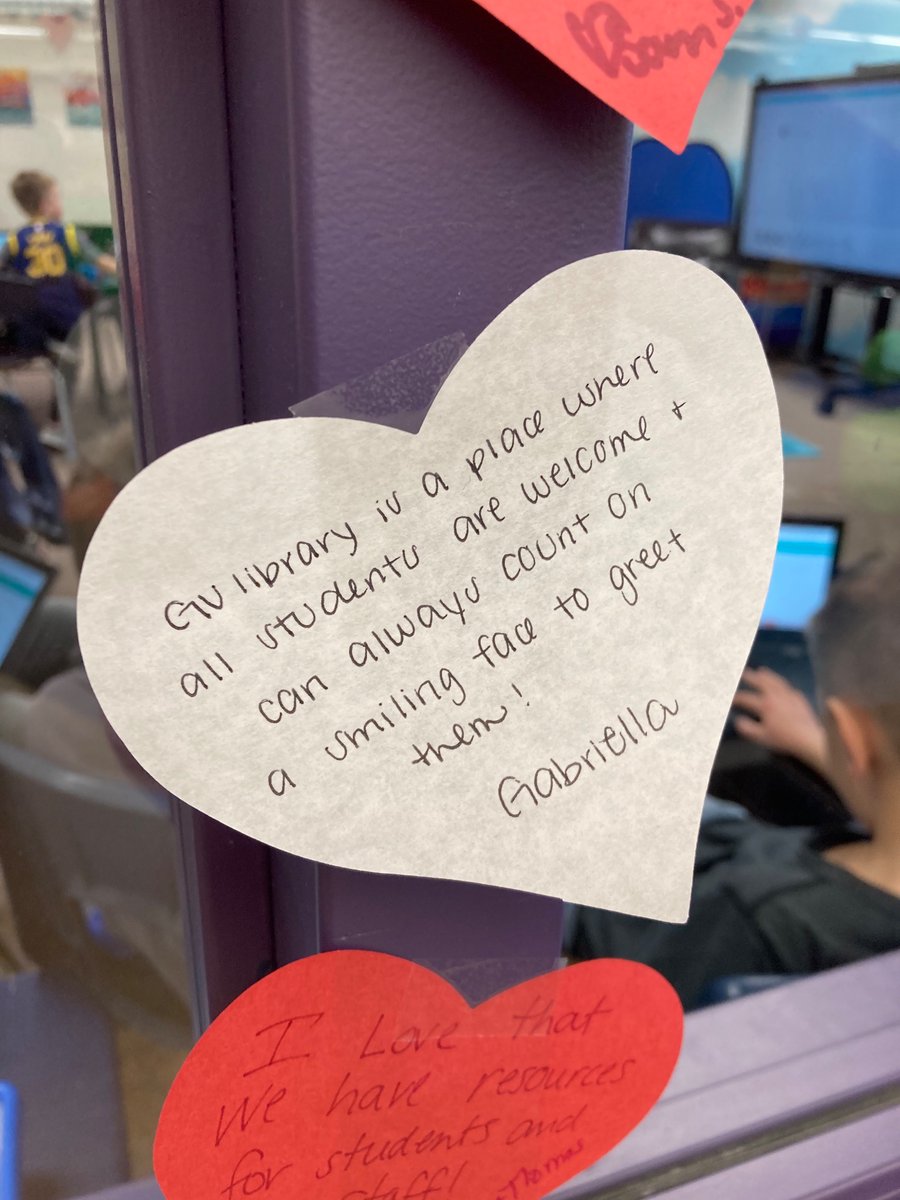 GV library is a place where
all students are welcome +
can always count on
a smiling face to greet
them!
Gabriella
I Love that
We have resources
for students and
staff!
Thomas
30